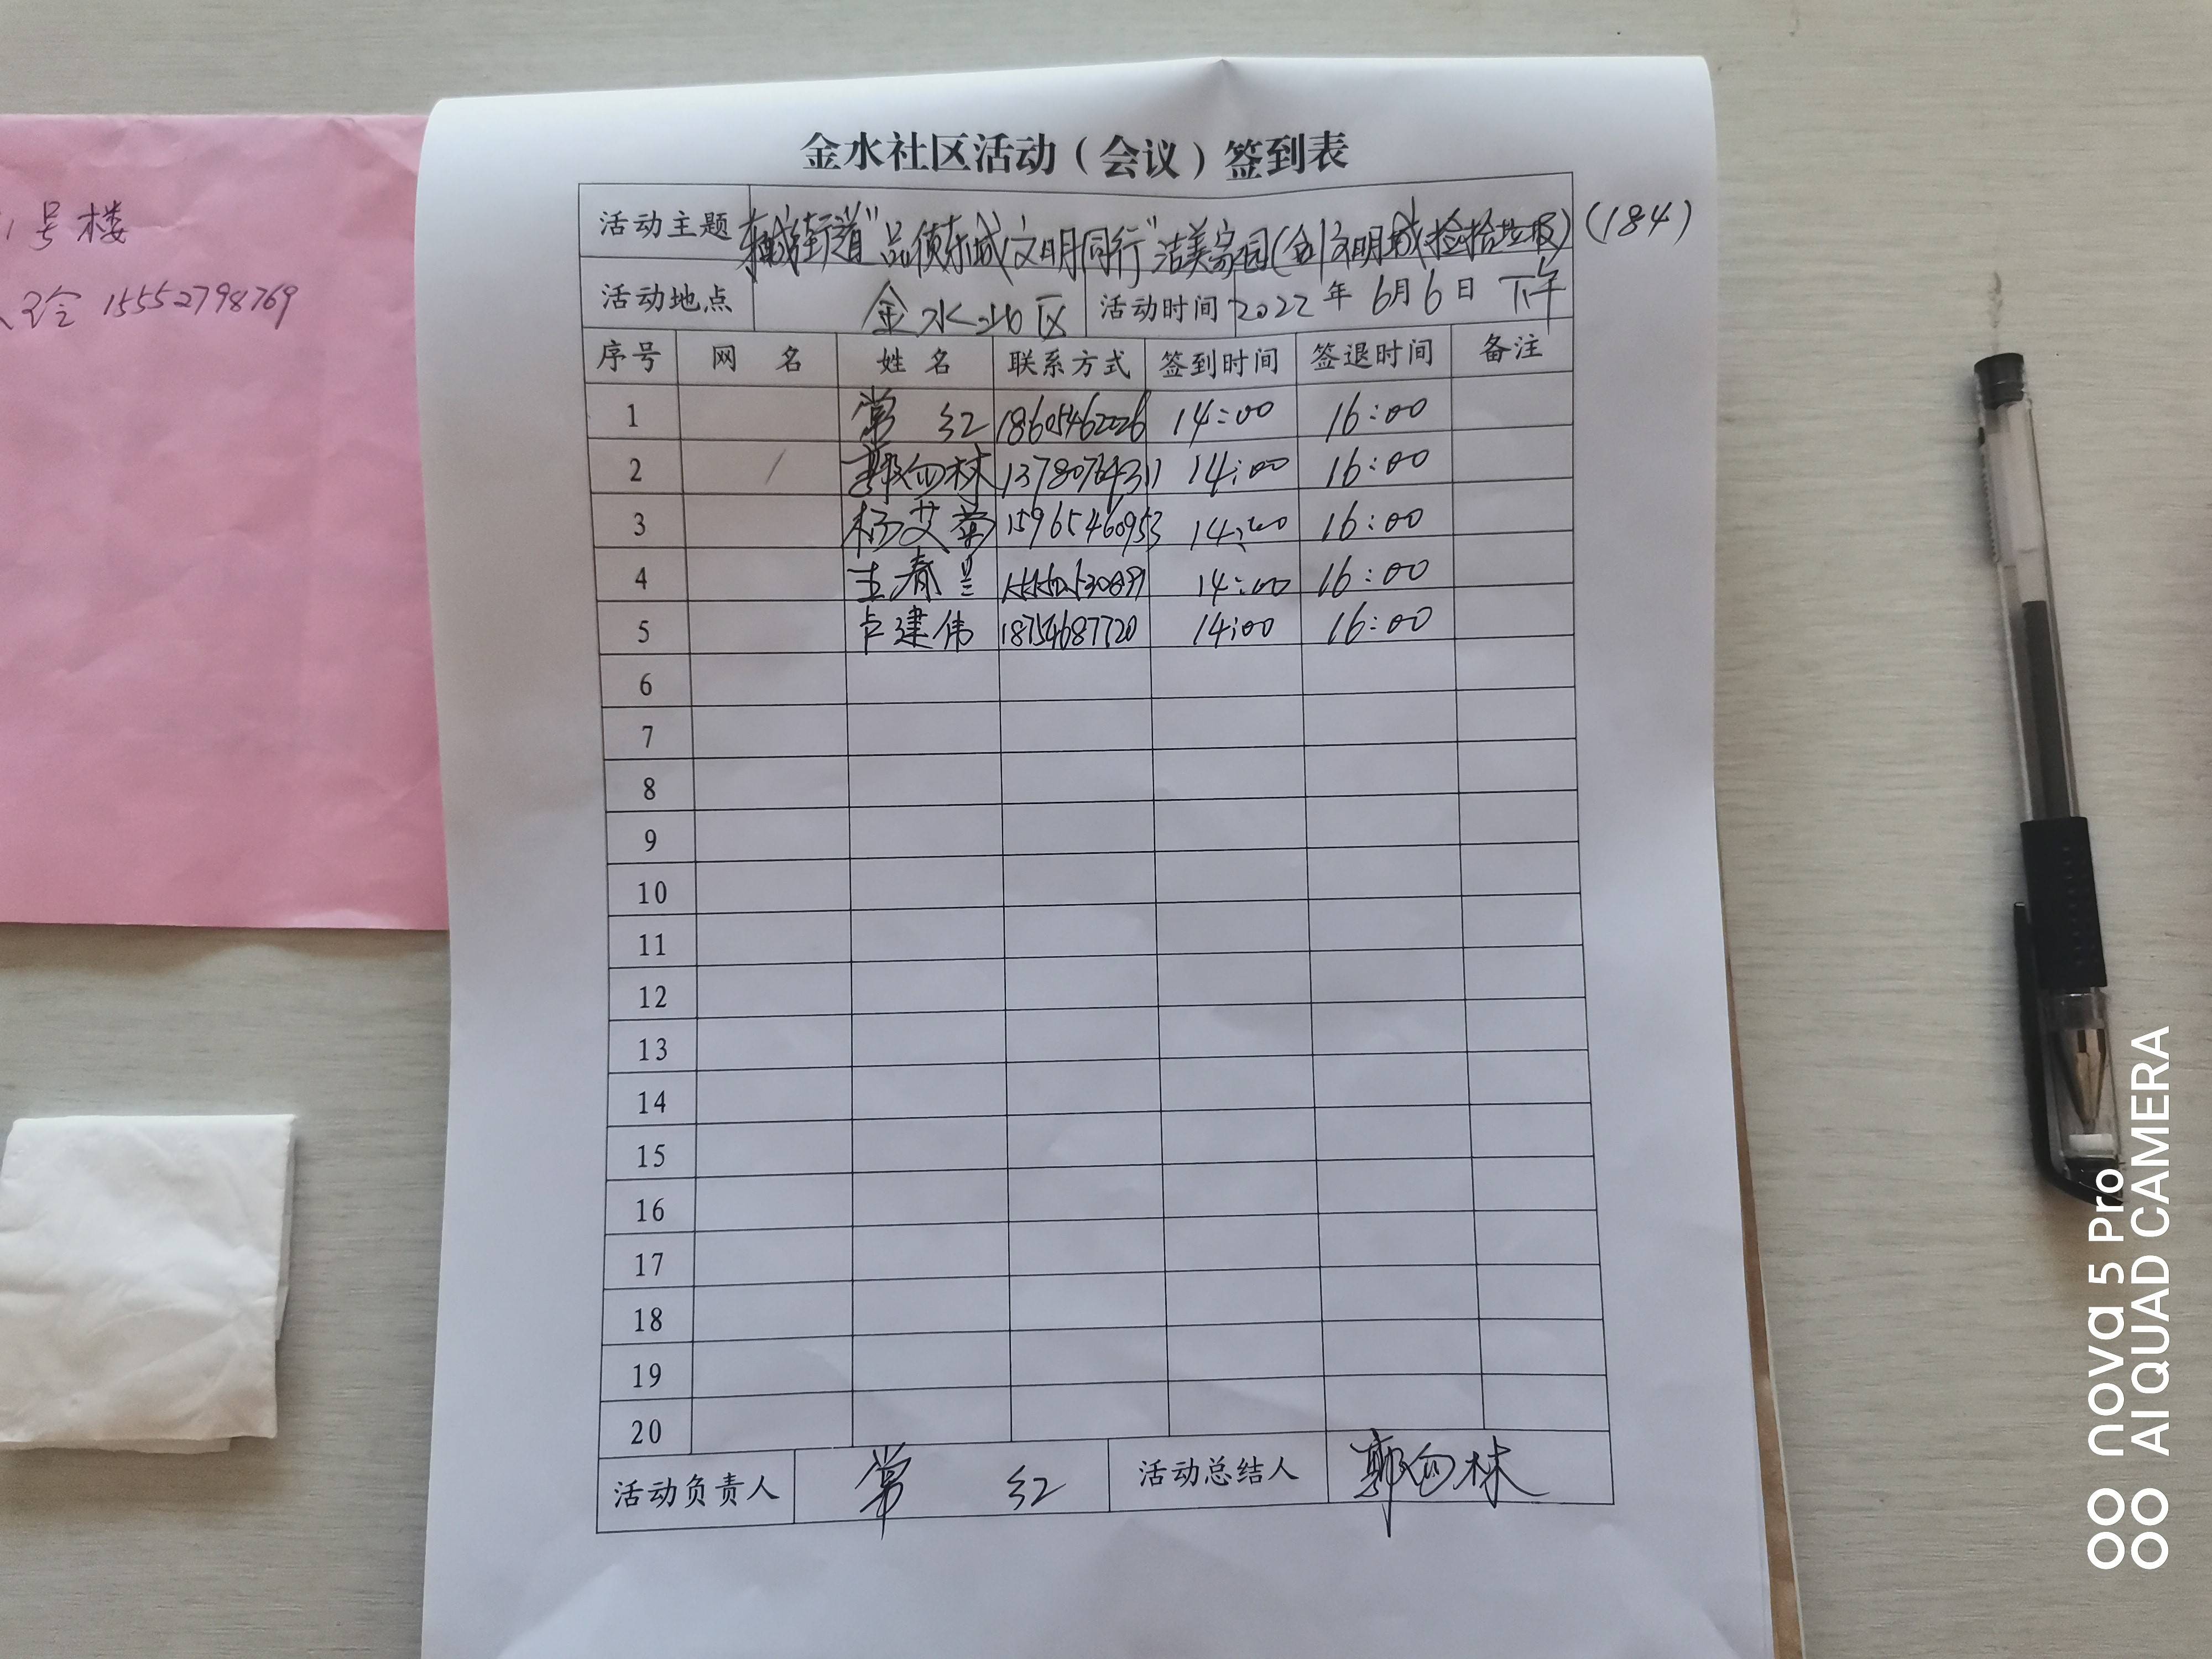 号楼
15552798769
金水社区活动（会议）签到表
活动主题 东城街道"品质东城 文明同行"洁美家园(创文明城 捡拾垃圾)(184)
活动地点 金水社区 活动时间 2022年6月6日 下午
序号 网名 姓名 联系方式 签到时间 签退时间 备注
1 常红 18605462026 14:00 16:00
2 郭向林 13780764311 14:00 16:00
3 杨艾菊 15965460953 14:00 16:00
4 王春兰 14:00 16:00
5 卢建伟 18754687720 14:00 16:00
6
7
8
9
10
11
12
13
14
15
16
17
18
19
20
活动负责人 常红 活动总结人 郭向林
nova 5 Pro
AI QUAD CAMERA